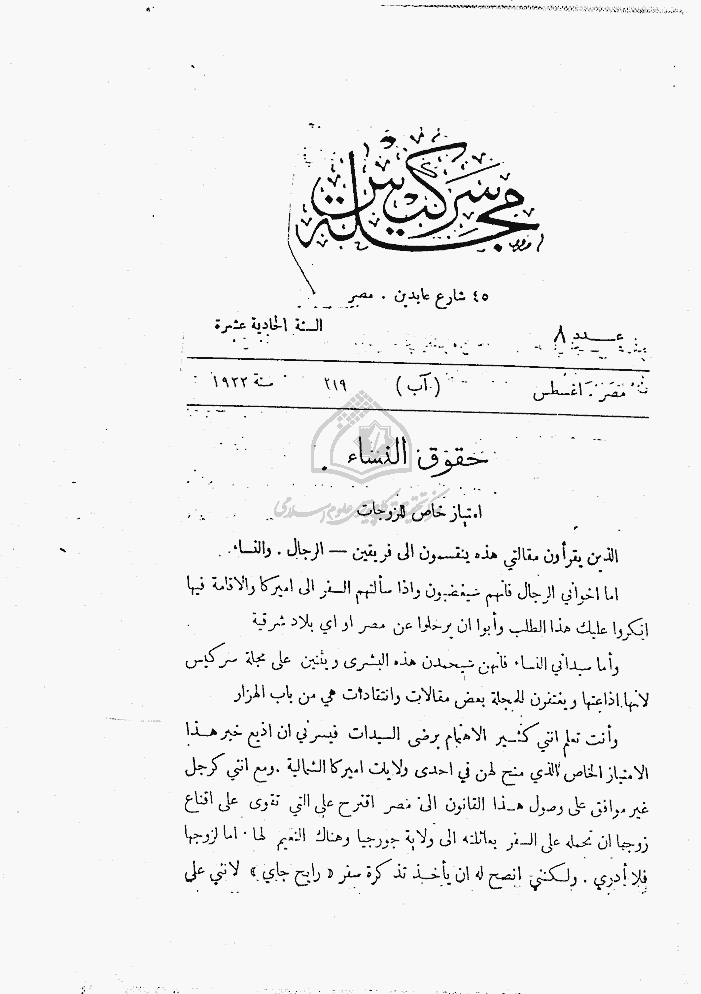 مجلة سركيس
٤٥ شارع عابدين . مصر
عدد ٨ السنة الحادية عشرة
مصر . اغسطس (آب) ٢١٩ سنة ١٩٢٢
حقوق النساء .
امتياز خاص للزوجات
الذين يقرأون مقالتي هذه ينقسمون الى فريقين — الرجال . والنساء
اما اخواني الرجال فانهم سيغضبون واذا سألتهم السفر الى اميركا والاقامة فيها
انكروا عليك هذا الطلب وأبوا ان يرحلوا عن مصر او اي بلاد شرقية
وأما سيداتي النساء فانهن سيحمدن هذه البشرى ويثنين على مجلة سركيس
لانها اذاعتها ويغتفرن للمجلة بعض مقالات وانتقادات هي من باب الهزار
وأنت تعلم انني كثير الاهتمام برضى السيدات فيسرني ان اذيع خبر هذا
الامتياز الخاص الذي منح لهن في احدى ولايات اميركا الشمالية . ومع انني كرجل
غير موافق على وصول هذا القانون الى مصر اقترح على التي تقوى على اقناع
زوجها ان تحمله على السفر بعائلته الى ولاية جورجيا وهناك النعيم لها . اما لزوجها
فلا أدري . ولكنني انصح له ان يأخذ تذكرة سفر « رايح جاي » لانني على